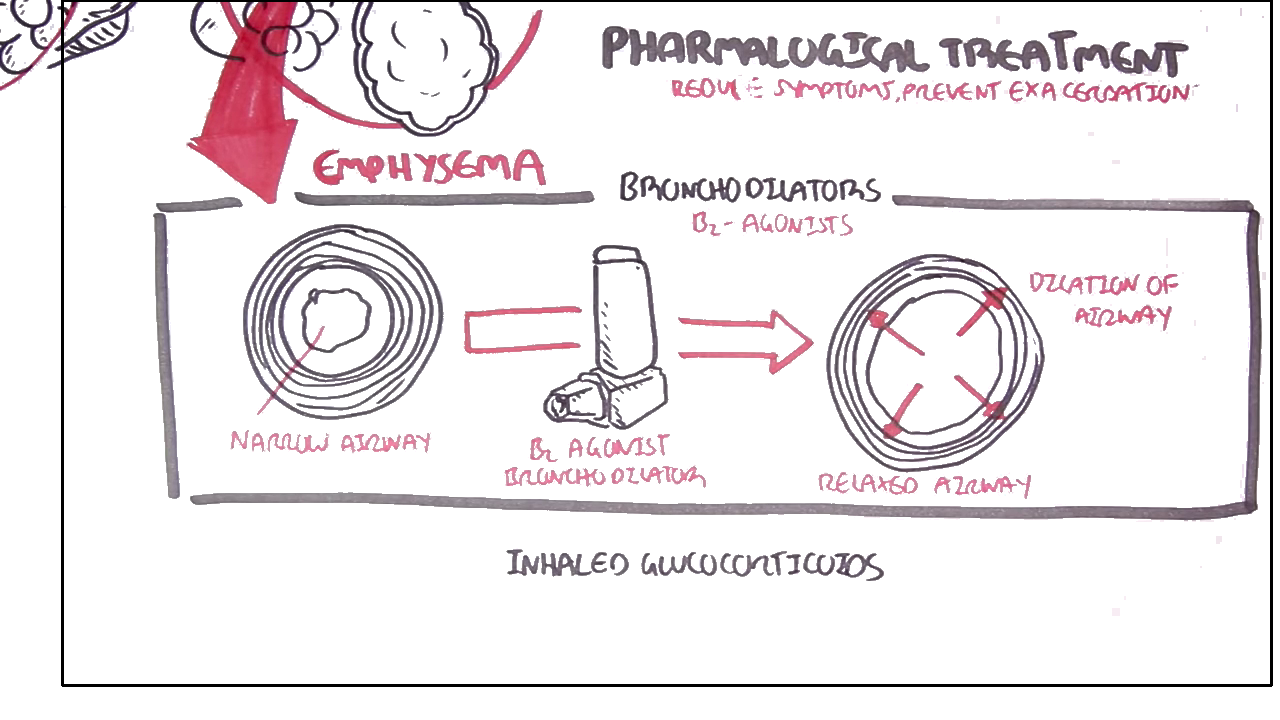 PHARMALOGICAL TREATMENT
REDUCE SYMPTOMS, PREVENT EXACERBATION
EMPHYSEMA
BRONCHODILATORS
B2-AGONISTS
DILATION OF
AIRWAY
NARROW AIRWAY
B2 AGONIST
BRONCHODILATOR
RELAXED AIRWAY
INHALED GLUCOCORTICOIDS